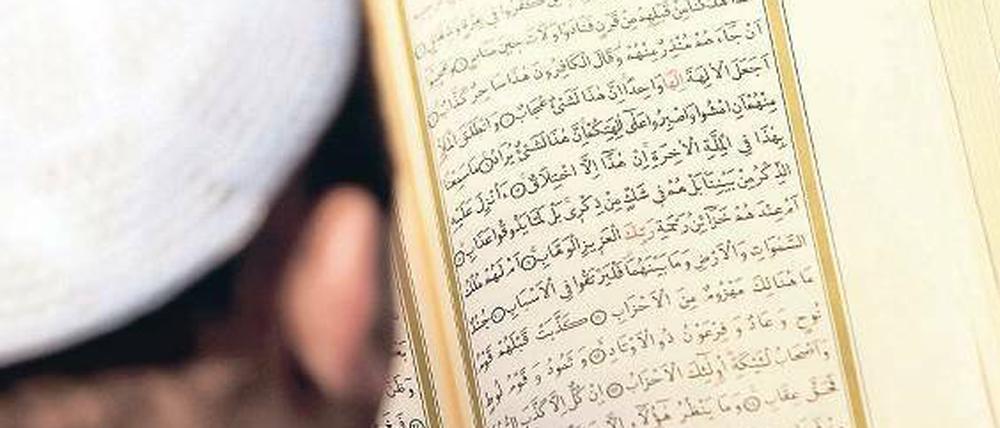 كفروا في عزة وشقاق
قبلهم من قرن فنادوا ولات حين مناص
ان جاءهم منذر منهم وقال الكافرون هذا ساحر كذاب
اجعل الالهة الها واحدا ان هذا لشئ عجاب وانطلق الملا
منهم ان امشوا واصبروا على الهتكم ان هذا لشئ يراد ما سمعنا
بهذا في الملة الاخرة ان هذا الا اختلاق ءانزل عليه
الذكر من بيننا بل هم في شك من ذكرى بل لما يذوقوا عذاب
ام عندهم خزائن رحمة ربك العزيز الوهاب ام لهم ملك
السموات والارض وما بينهما فليرتقوا في الاسباب جند
ما هنالك مهزوم من الاحزاب كذبت قبلهم قوم
نوح وعاد وفرعون ذو الاوتاد وثمود وقوم لوط
واصحاب لئيكة اولئك الاحزاب ان كل الا كذب
فحق عقاب وما ينظر هؤلاء